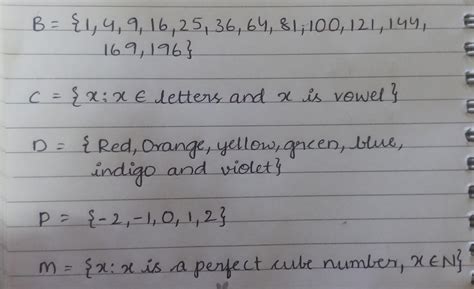 B = {1, 4, 9, 16, 25, 36, 64, 81, 100, 121, 144,
169, 196}
C = {x : x ∈ letters and x is vowel}
D = {Red, Orange, yellow, green, blue,
indigo and violet}
P = {-2, -1, 0, 1, 2}
M = {x : x is a perfect cube number, x ∈ N}